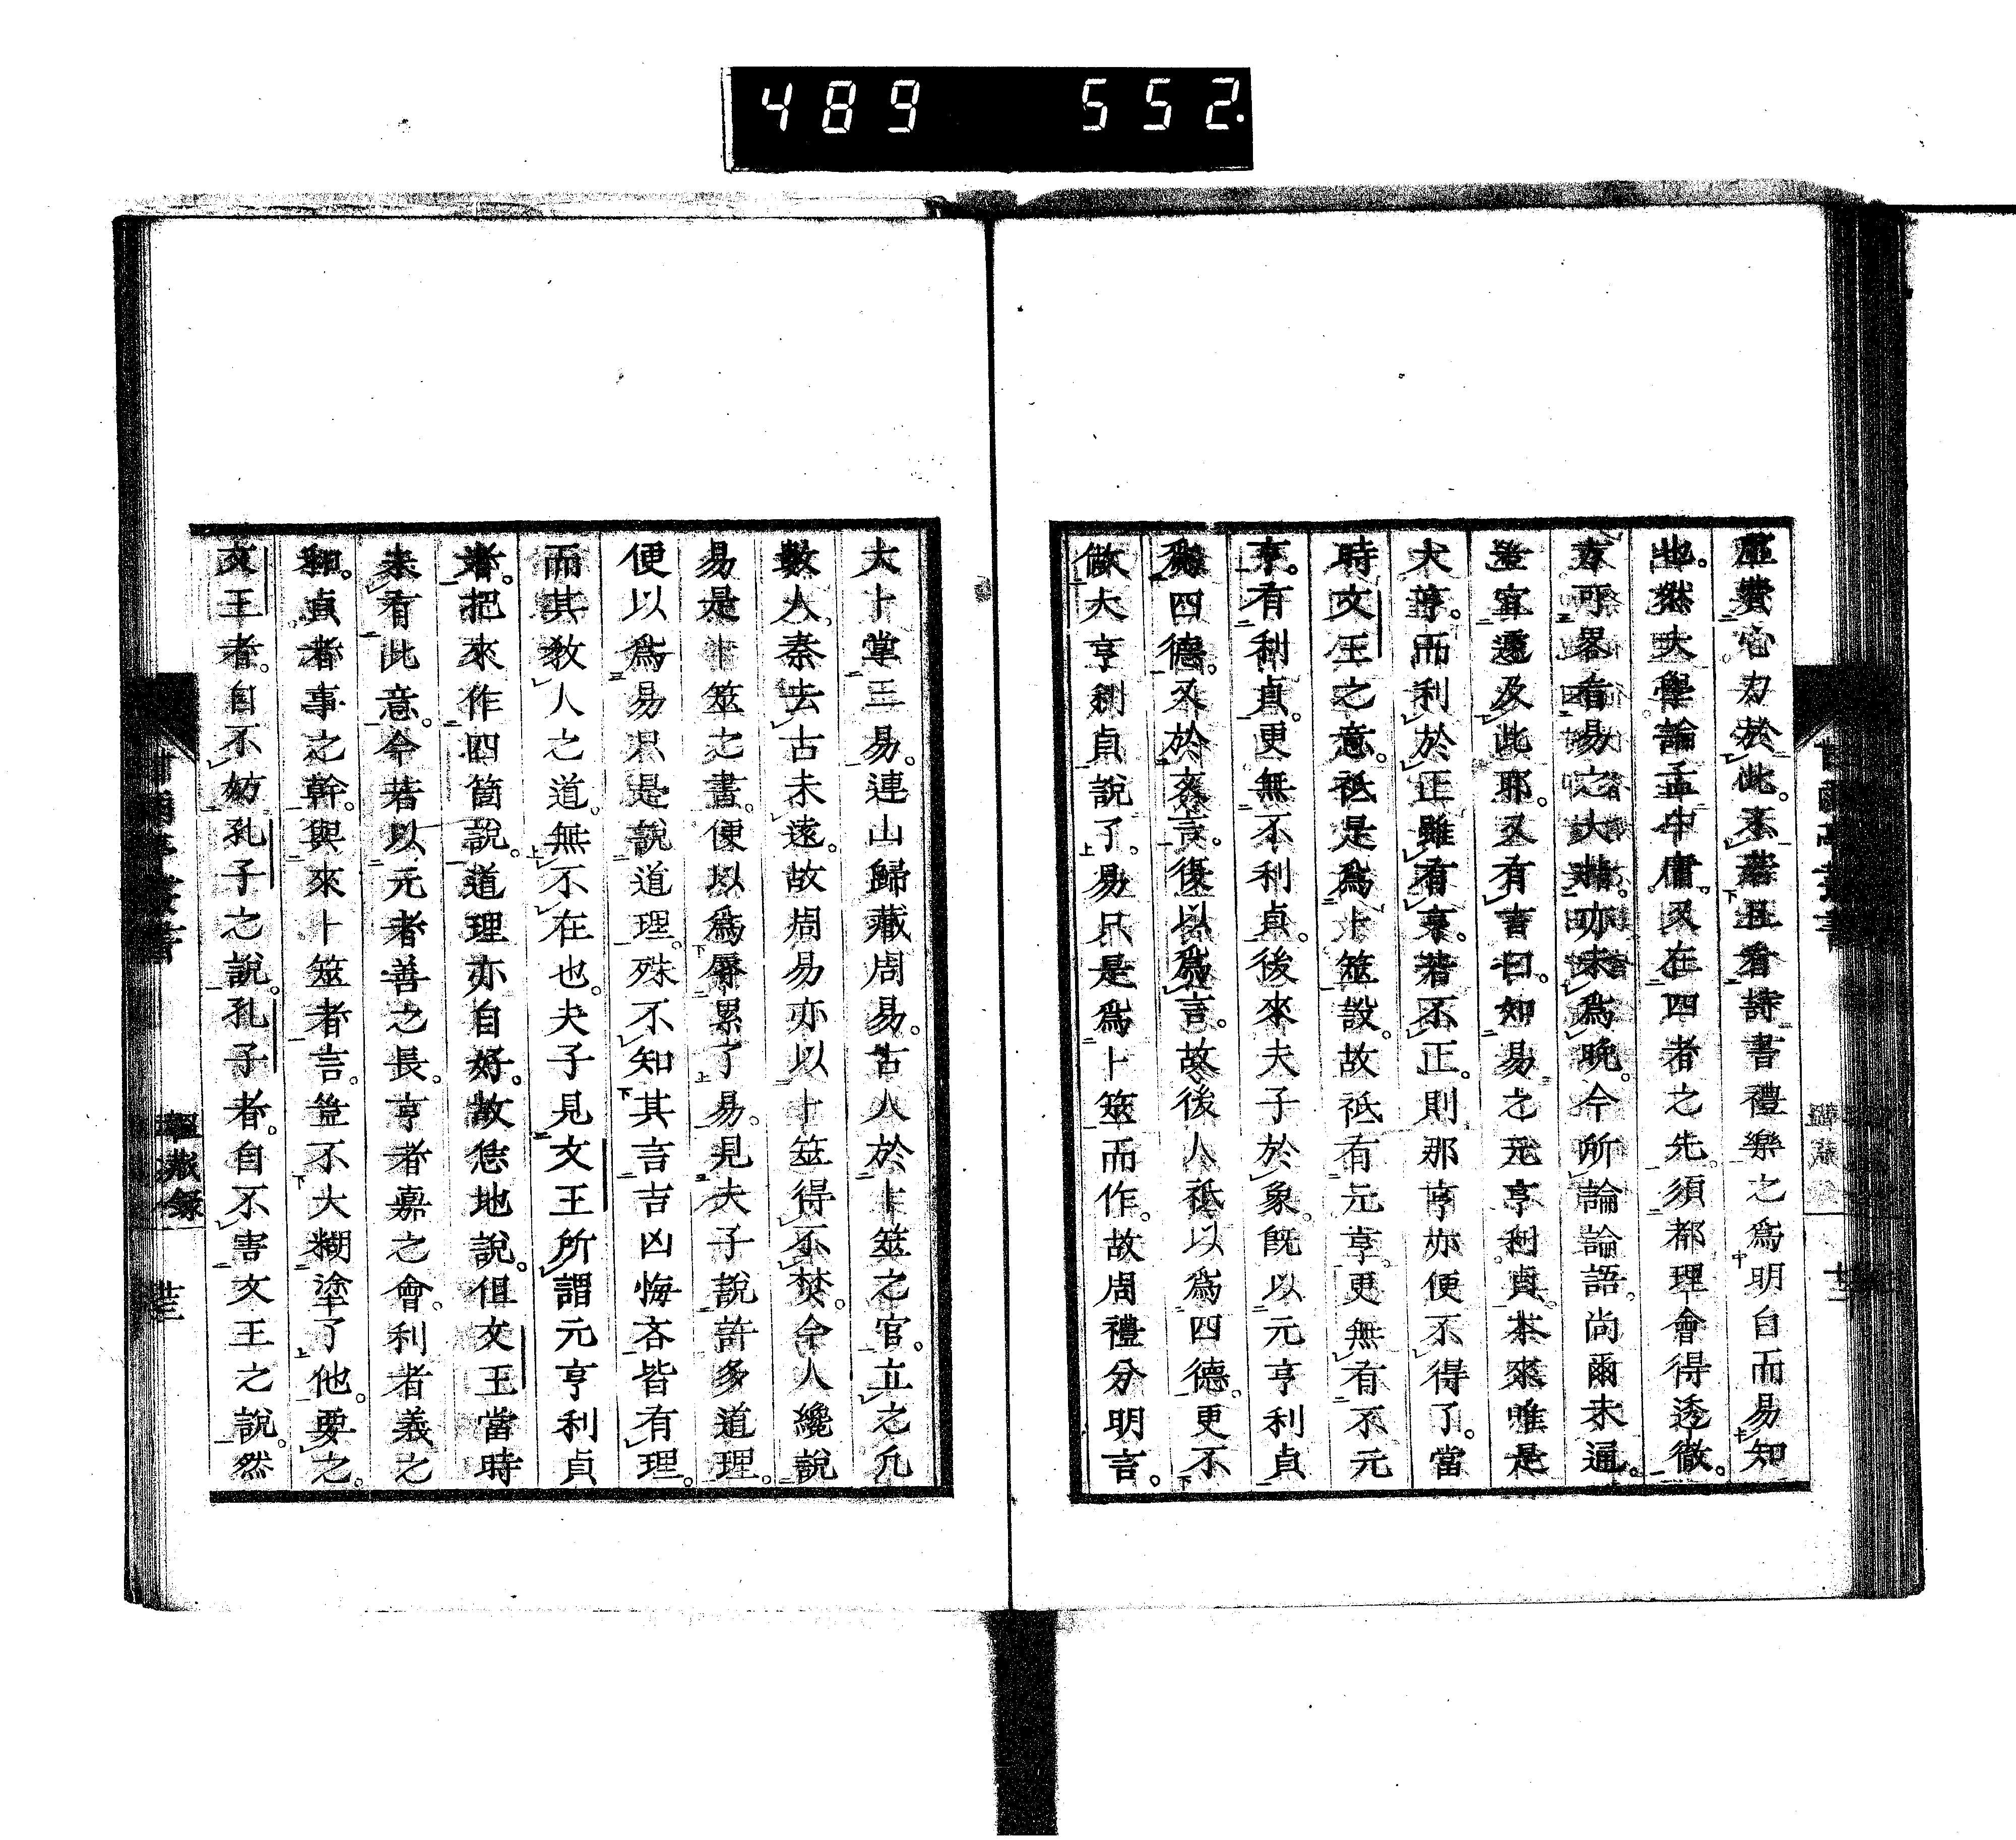 489 552.
虛費心力於此。不若且看詩書禮樂之爲明白而易知
也。然大學論孟中庸。又在四者之先。須都理會得透徹。
方可畧看易之大指。亦未爲晩。今所論論語。尚爾未通。
豈宜遽及此耶。又有書曰。如易之元亨利貞。本來唯是
大亨。而利於正。雖有亨。若不正。則那亨亦便不得了。當
時文王之意。祗是爲卜筮設。故祗有元亨。更無有不元
亨。有利貞。更無不利貞。後來夫子於彖。既以元亨利貞
爲四德。又於文言。復以爲言。故後人祗以爲四德。更不
做大亨利貞說了。易只是爲卜筮而作。故周禮分明言。
大卜掌三易。連山歸藏周易。古人於卜筮之官。立之凡
數人。秦去古未遠。故周易亦以卜筮得不焚。今人纔說
易是卜筮之書。便以爲辱累了易。見夫子說許多道理。
便以爲易只是說道理。殊不知其言吉凶悔吝皆有理。
而其敎人之道。無不在也。夫子見文王所謂元亨利貞
者。把來作四箇說。道理亦自好。故恁地說。但文王當時
未有此意。今若以元者善之長。亨者嘉之會。利者義之
和。貞者事之幹。與來卜筮者言。豈不大糊塗了他。要之。
文王者。自不妨孔子之說。孔子者。自不害文王之說。然
韞藏錄